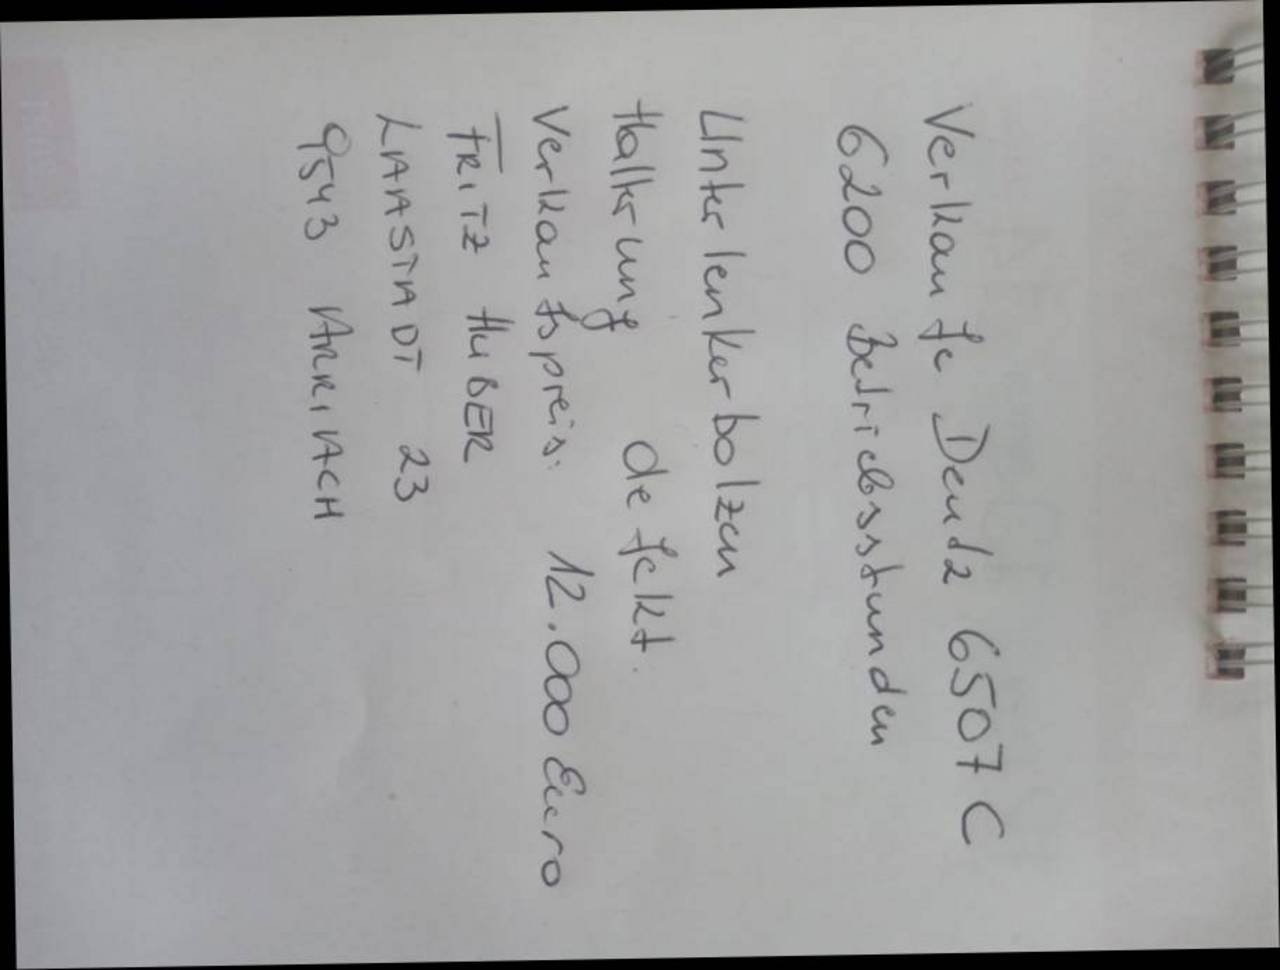 Verkaufe Deutz 6507 C
6200 Betriebsstunden
Unterlenkerbolzen
Halterung defekt.
Verkaufspreis: 12.000 Euro
FRITZ HUBER
LAASTADT 23
9543 ARRIACH